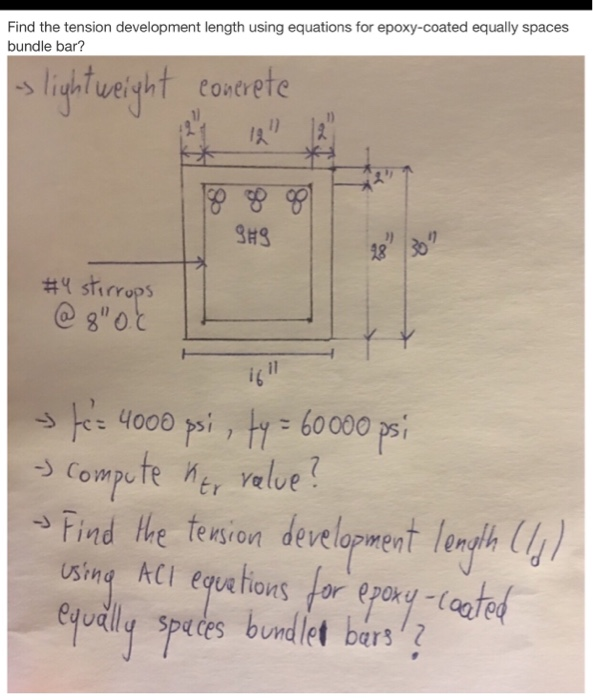 Find the tension development length using equations for epoxy-coated equally spaces
bundle bar?
→ lightweight concrete
2" 12" 2"
2"
9#9
28" 30"
#4 stirrops
@ 8" O.C
16"
→ fc' = 4000 psi, fy = 60000 psi
→ Compute Ktr value?
→ Find the tension development length (ld)
using ACI equations for epoxy-coated
equally spaces bundled bars?